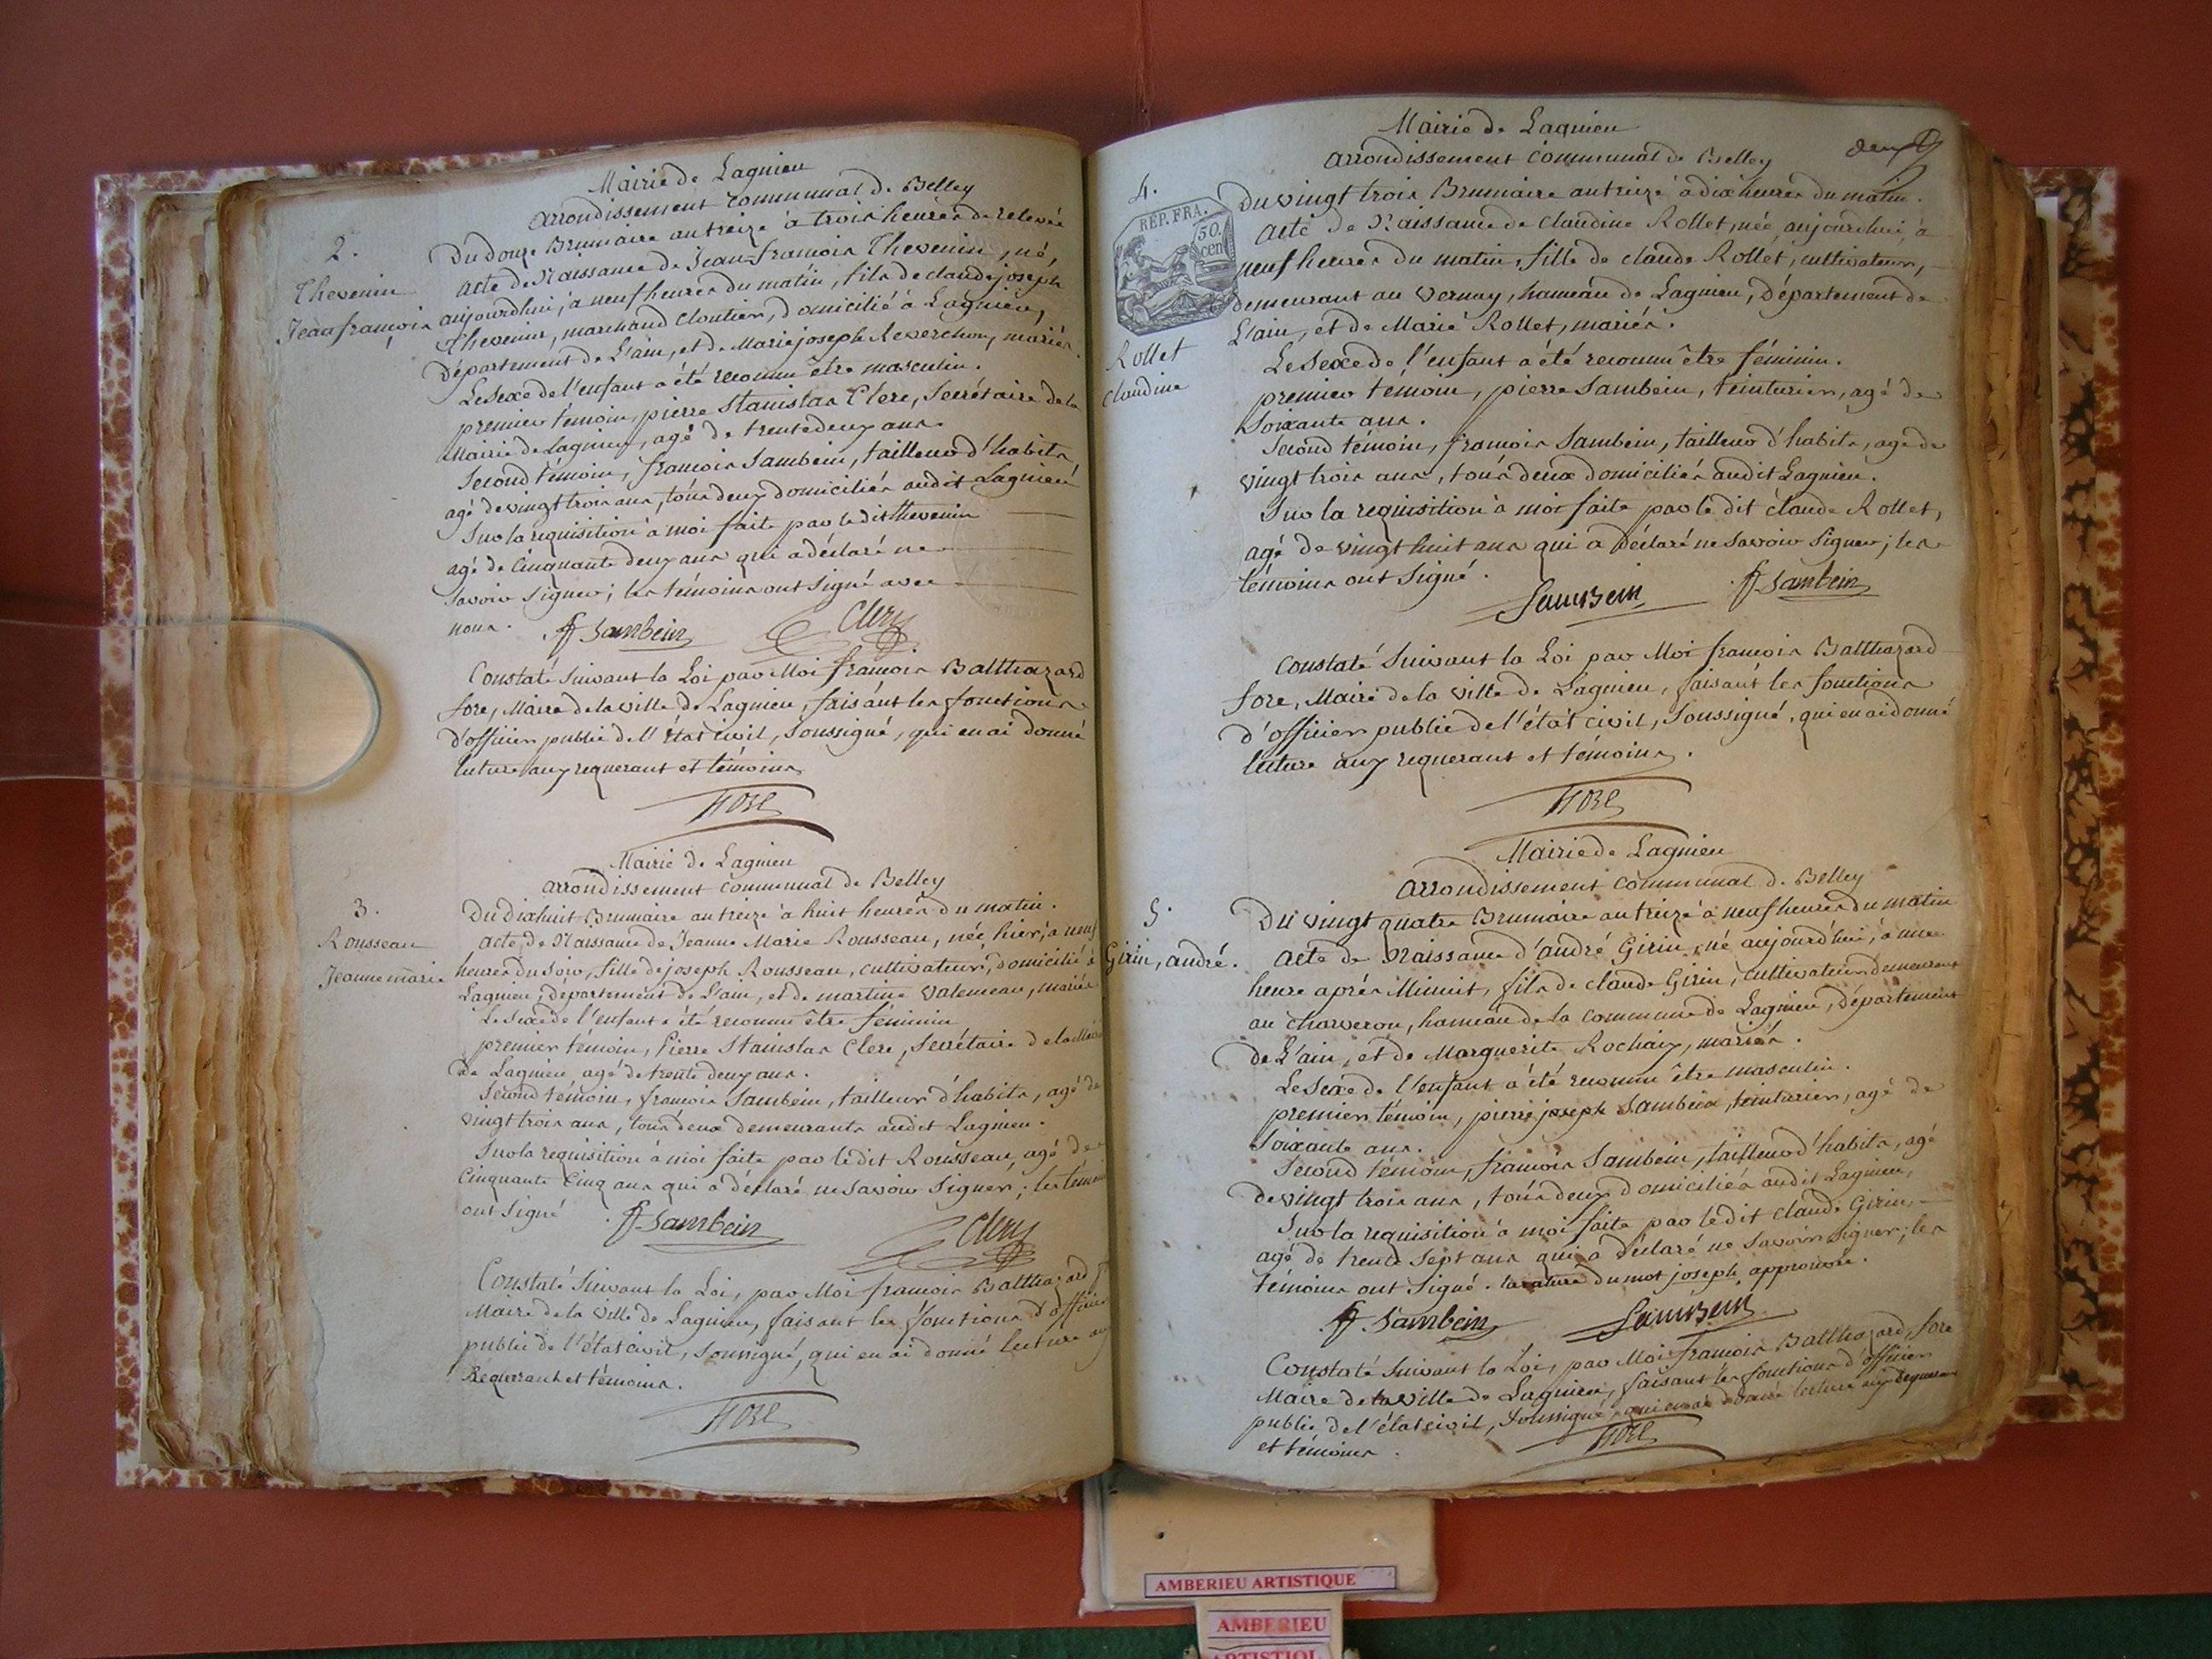 Mairie de Lagnieu
arrondissement communal de Belley
2.
Thevenin
Jean françois
Du douze Brumaire an treize à trois heures de relevée
acte de Naissance de Jean-francois Thevenin, né,
aujourdhui, à neuf heures du matin, fils de claude joseph
thevenin, marchand cloutier, domicilié à Lagnieu,
département de L'ain, et de Marie joseph Reverchon, mariés.
Le sexe de l'enfant a été reconnu être masculin.
premier témoin, pierre Stanislas Clere, Secrétaire de la
Mairie de Lagnieu, agé de trente deux ans.
Second témoin, francois Sambein, tailleur d'habits,
agé de vingt trois ans, tous deux domiciliés audit Lagnieu
Sur la requisition à moi faite par le dit thevenin
agé de Cinquante deux ans qui a déclaré ne
savoir signer; les témoins ont signé avec
nous. Sambein Clere
Constaté suivant la Loi par Moi francois Balthazard
fore, Maire de la ville de Lagnieu, faisant les fonctions
d'officier public de l'état civil, soussigné, qui en ai donné
lecture aux requerant et témoins
FORE
Mairie de Lagnieu
arrondissement communal de Belley
3.
Rousseau
Jeanne marie
Du dixhuit Brumaire an treize à huit heures du matin.
acte de Naissance de Jeanne Marie Rousseau, née hier, à neuf
heures du soir, fille de joseph Rousseau, cultivateur, domicilié à
Lagnieu, département de L'ain, et de martine, mariés
Le sexe de l'enfant a été reconnu être féminin
premier témoin, Pierre Stanislas Clere, Secrétaire de la
de Lagnieu agé de trente deux ans.
Second témoin, francois Sambein, tailleur d'habits, agé de
vingt trois ans, tous deux demeurants audit Lagnieu.
Sur la requisition à moi faite par le dit Rousseau, agé de
Cinquante Cinq ans qui a déclaré ne savoir signer; les témoins
ont signé Sambein Clere
Constaté suivant la Loi, par Moi francois Balthazard
Maire de la ville de Lagnieu, faisant les fonctions d'officier
public de l'état civil, soussigné, qui en ai donné lecture aux
Requerant et témoins.
FORE
deux
Mairie de Lagnieu
arrondissement communal de Belley
4.
REP. FRA.
50.
cen
Rollet
claudine
Du vingt trois Brumaire an treize à dix heures du matin.
acte de Naissance de claudine Rollet, née, aujourdhui, à
neuf heures du matin, fille de claude Rollet, cultivateur,
demeurant au Vernay, hameau de Lagnieu, Département de
L'ain, et de Marie Rollet, mariés.
Le sexe de l'enfant a été reconnu être féminin.
premier temoin, pierre Sambein, teinturier, agé de
soixante ans.
Second témoin, francois Sambein, tailleur d'habits, agé de
vingt trois ans, tous deux domiciliés audit Lagnieu.
Sur la requisition à moi faite par le dit claude Rollet,
agé de vingt huit ans qui a déclaré ne savoir signer; les
témoins ont signé.
Sambein Sambein
Constaté suivant la Loi par Moi francois Balthazard
fore, Maire de la ville de Lagnieu, faisant les fonctions
d'officier public de l'état civil, soussigné, qui en ai donné
lecture aux requerant et témoins.
FORE
Mairie de Lagnieu
arrondissement communal de Belley
5.
Girin, andré.
Du vingt quatre Brumaire an treize à neuf heures du matin
acte de Naissance d'andré Girin, né aujourd'hui, à une
heure après Minuit, fils de claude Girin, cultivateur demeurant
au Charveron, hameau de la commune de Lagnieu, département
de L'ain, et de Marguerite Rochaix, mariés.
Le sexe de l'enfant a été reconnu être masculin.
premier témoin, pierre joseph Sambein, teinturier, agé de
soixante ans.
Second témoin, francois Sambein, tailleur d'habits, agé
de vingt trois ans, tous deux domiciliés audit Lagnieu,
Sur la requisition à moi faite par le dit claude Girin,
agé de trente sept ans qui a déclaré ne savoir signer; les
témoins ont signé. la rature du mot joseph approuvée.
Sambein Sambein
Constaté suivant la Loi, par Moi francois Balthazard, fore
Maire de la ville de Lagnieu, faisant les fonctions d'officier
public de l'état civil, soussigné, qui en ai donné lecture aux requerant
et témoins.
FORE
AMBERIEU ARTISTIQUE
AMBERIEU
ARTISTIQ